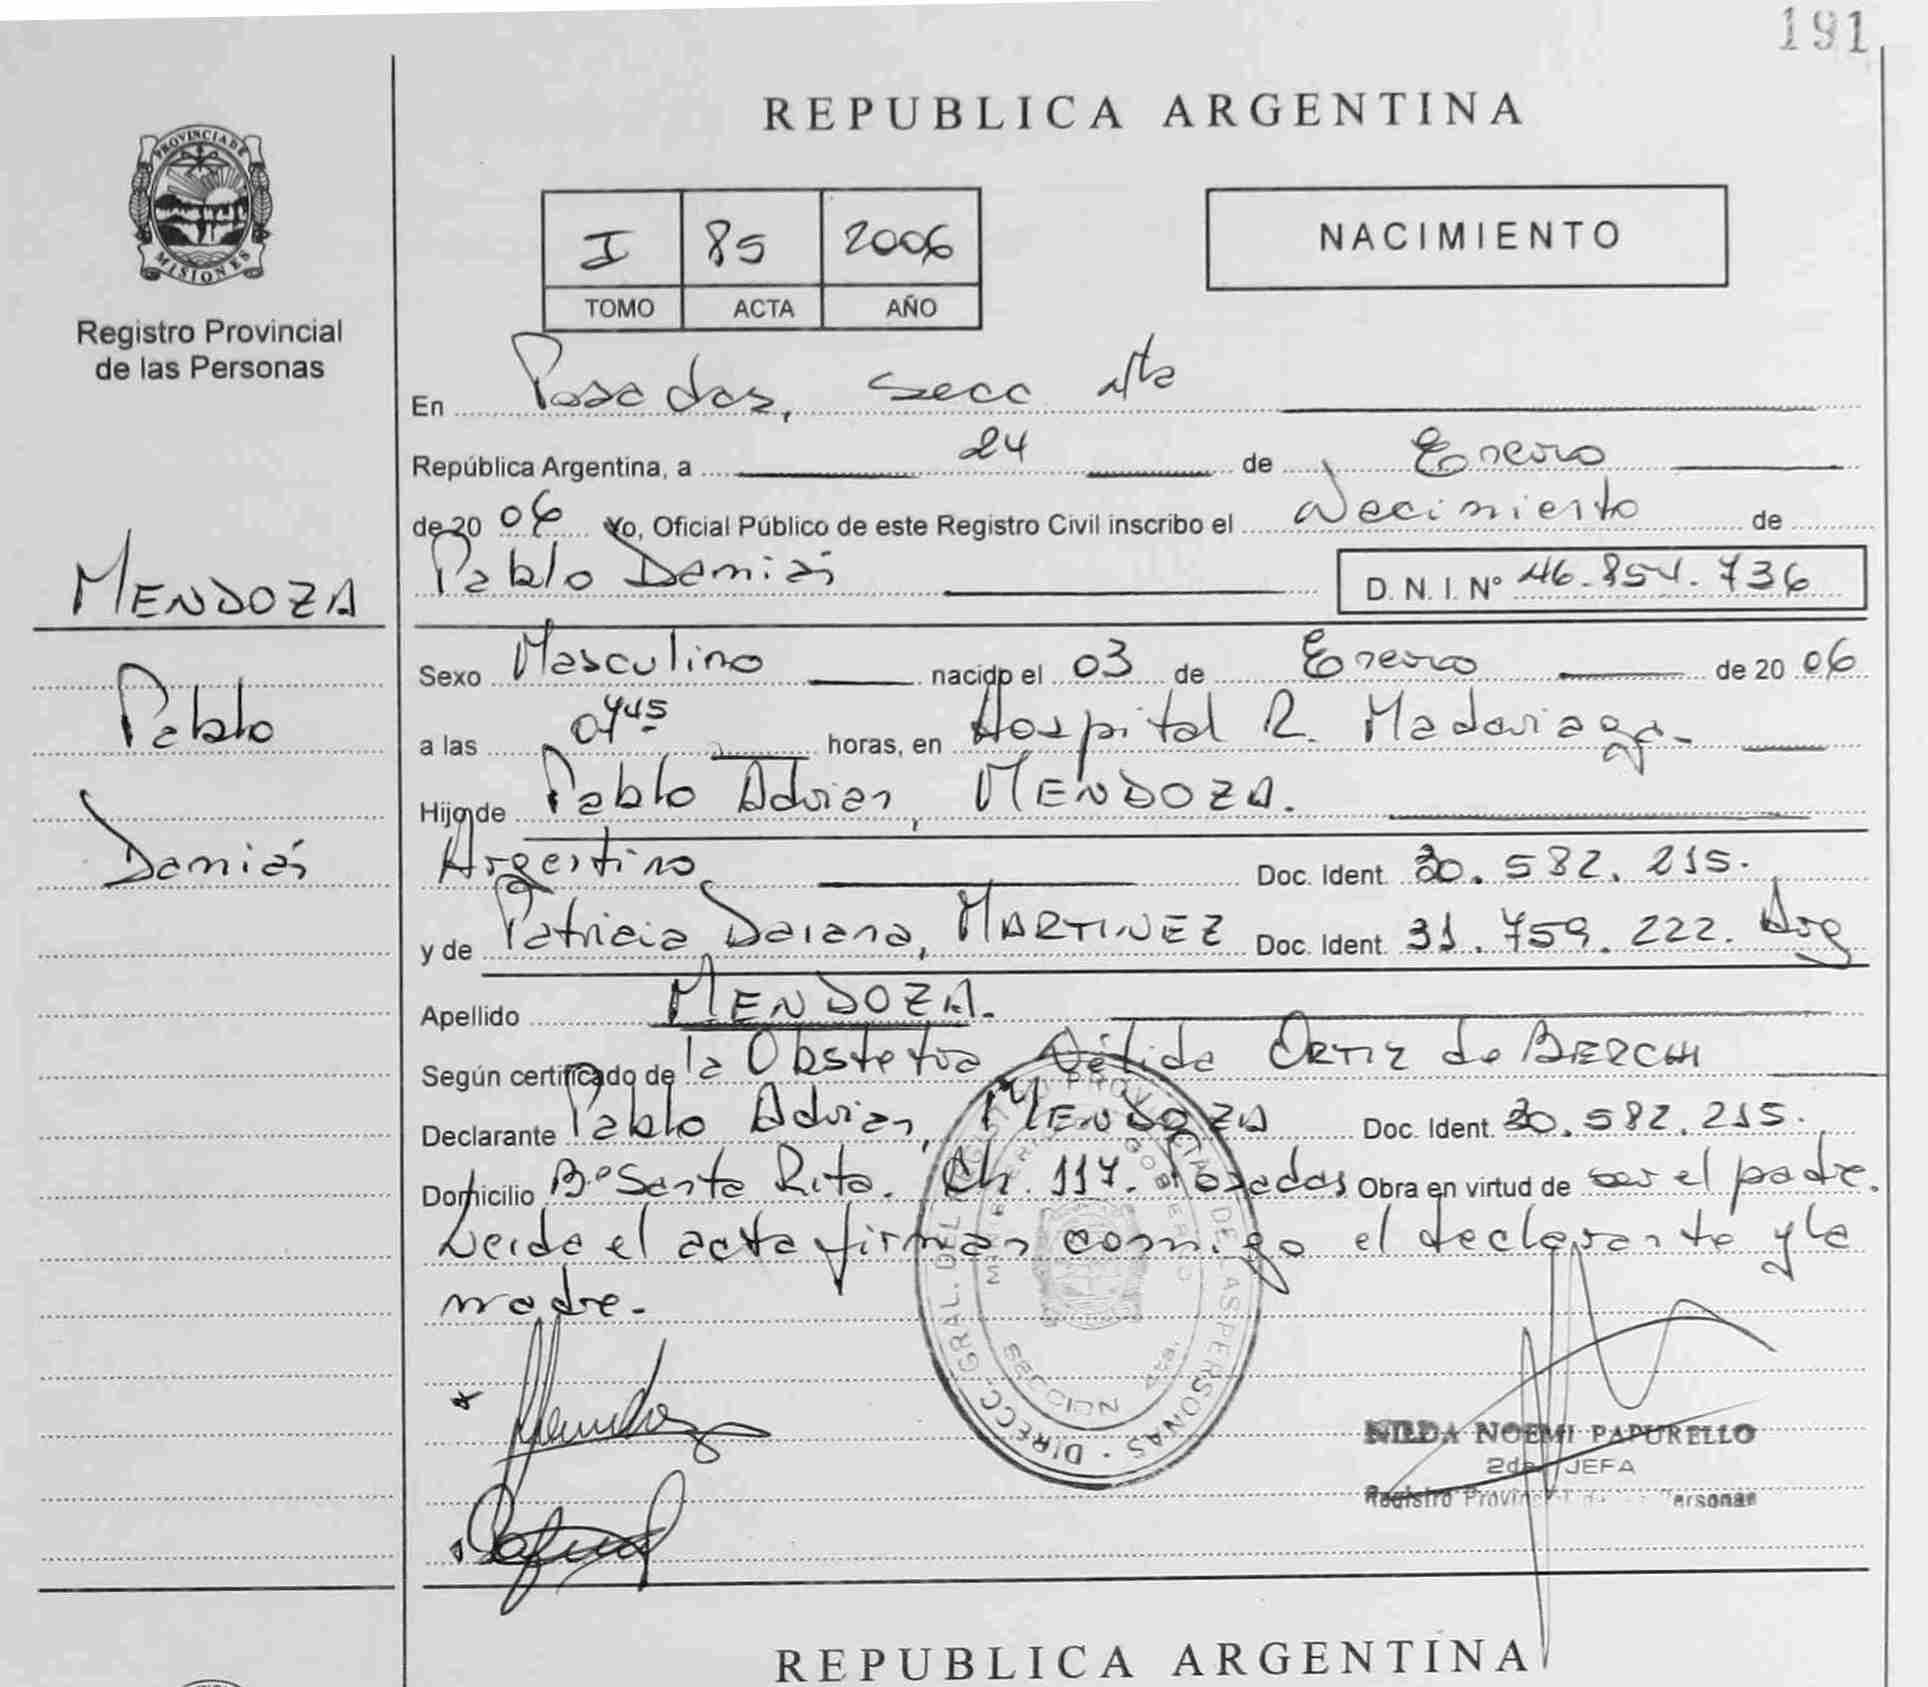 191
REPUBLICA ARGENTINA
PROVINCIA DE
MISIONES
Registro Provincial
de las Personas
I 85 2006
TOMO ACTA AÑO
NACIMIENTO
En Posadas, Secc 4ta
República Argentina, a 24 de Enero
de 20 06 Yo, Oficial Público de este Registro Civil inscribo el Nacimiento de
Pablo Damián D. N. I. Nº 46.854.736
MENDOZA
Pablo
Damián
Sexo Masculino nacido el 03 de Enero de 20 06
a las 0745 horas, en Hospital R. Madariaga.
Hijo de Pablo Adrian, MENDOZA.
Argentino Doc. Ident. 30.582.215.
y de Patricia Daiana, MARTINEZ Doc. Ident. 31.759.222. Arg
Apellido MENDOZA.
Según certificado de la Obstetra Nélida ORTIZ de BERCHI
Declarante Pablo Adrian, MENDOZA Doc. Ident. 30.582.215.
Domicilio Bº Santa Rita. Ch. 117. Posadas Obra en virtud de ser el padre.
Leida el acta firman conmigo el declarante y la
madre.
DIRECC. GRAL. DEL REGISTRO PROVINCIAL DE LAS PERSONAS
MINISTERIO DE GOBIERNO
SECCION 4ta.
Mendoza
NILDA NOEMI PAPURELLO
2da JEFA
Registro Provincial de las Personas
REPUBLICA ARGENTINA